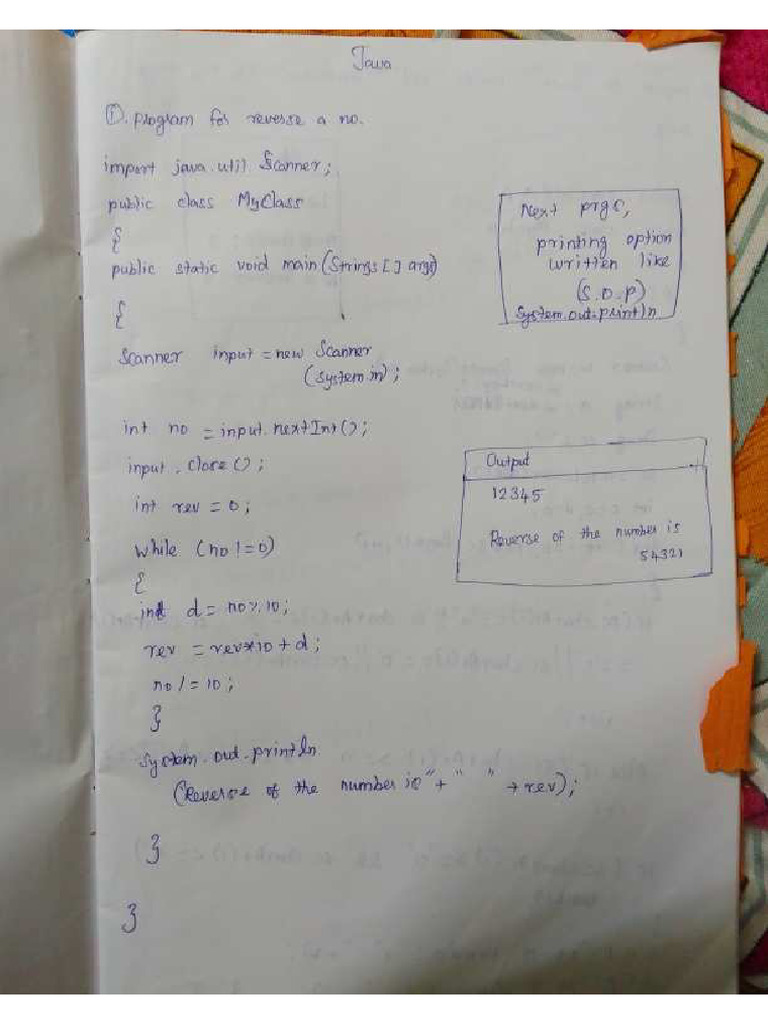 Java
①. program for reverse a no.
import java.util.Scanner;
public class MyClass
{
public static void main(Strings[] args)
{
Scanner input = new Scanner
(System in);
int no = input.nextInt();
input.close();
int rev = 0;
while (no != 0)
{
int d = no % 10;
rev = rev*10 + d;
no /= 10;
}
System.out.println
(Reverse of the number is" + " " + rev);
}
}
Next prgs,
printing option
written like
(S.O.P)
System.out.println
Output
12345
Reverse of the number is
54321